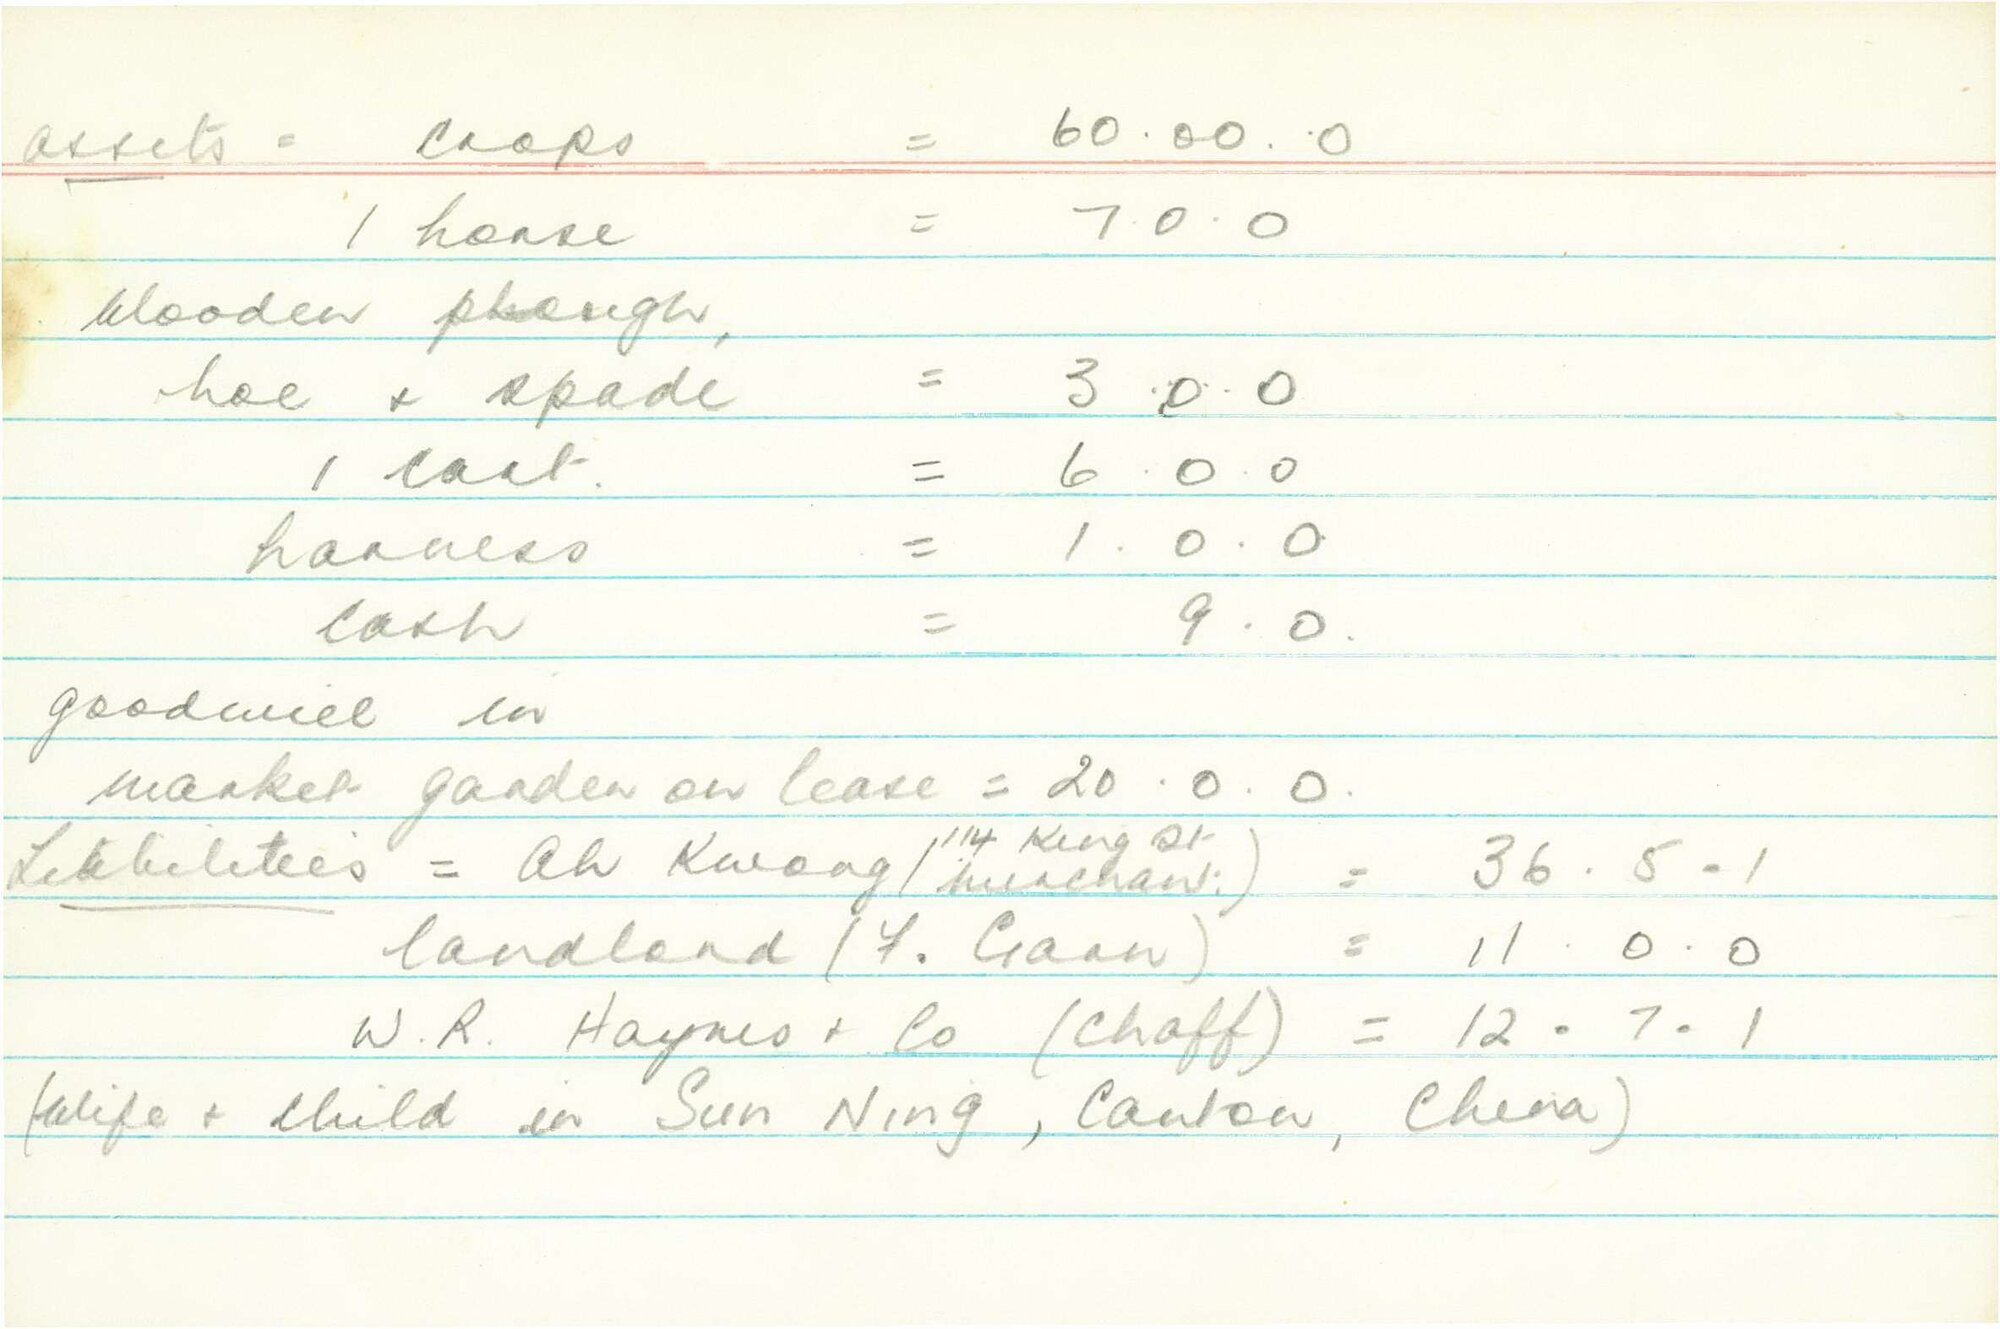 assets = crops = 60.00.0
1 horse = 7.0.0
Wooden plough,
hoe + spade = 3.0.0
1 cart. = 6.0.0
harness = 1.0.0
Cash = 9.0.
goodwill in
market garden on lease = 20.0.0.
Liabilities = Ah Kwong (114 King St merchant.) = 36.5.1
landlord ( = 11.0.0
W.R. Haynes + Co (Chaff) = 12.7.1
(Wife + child in Sun Ning, Canton, China)